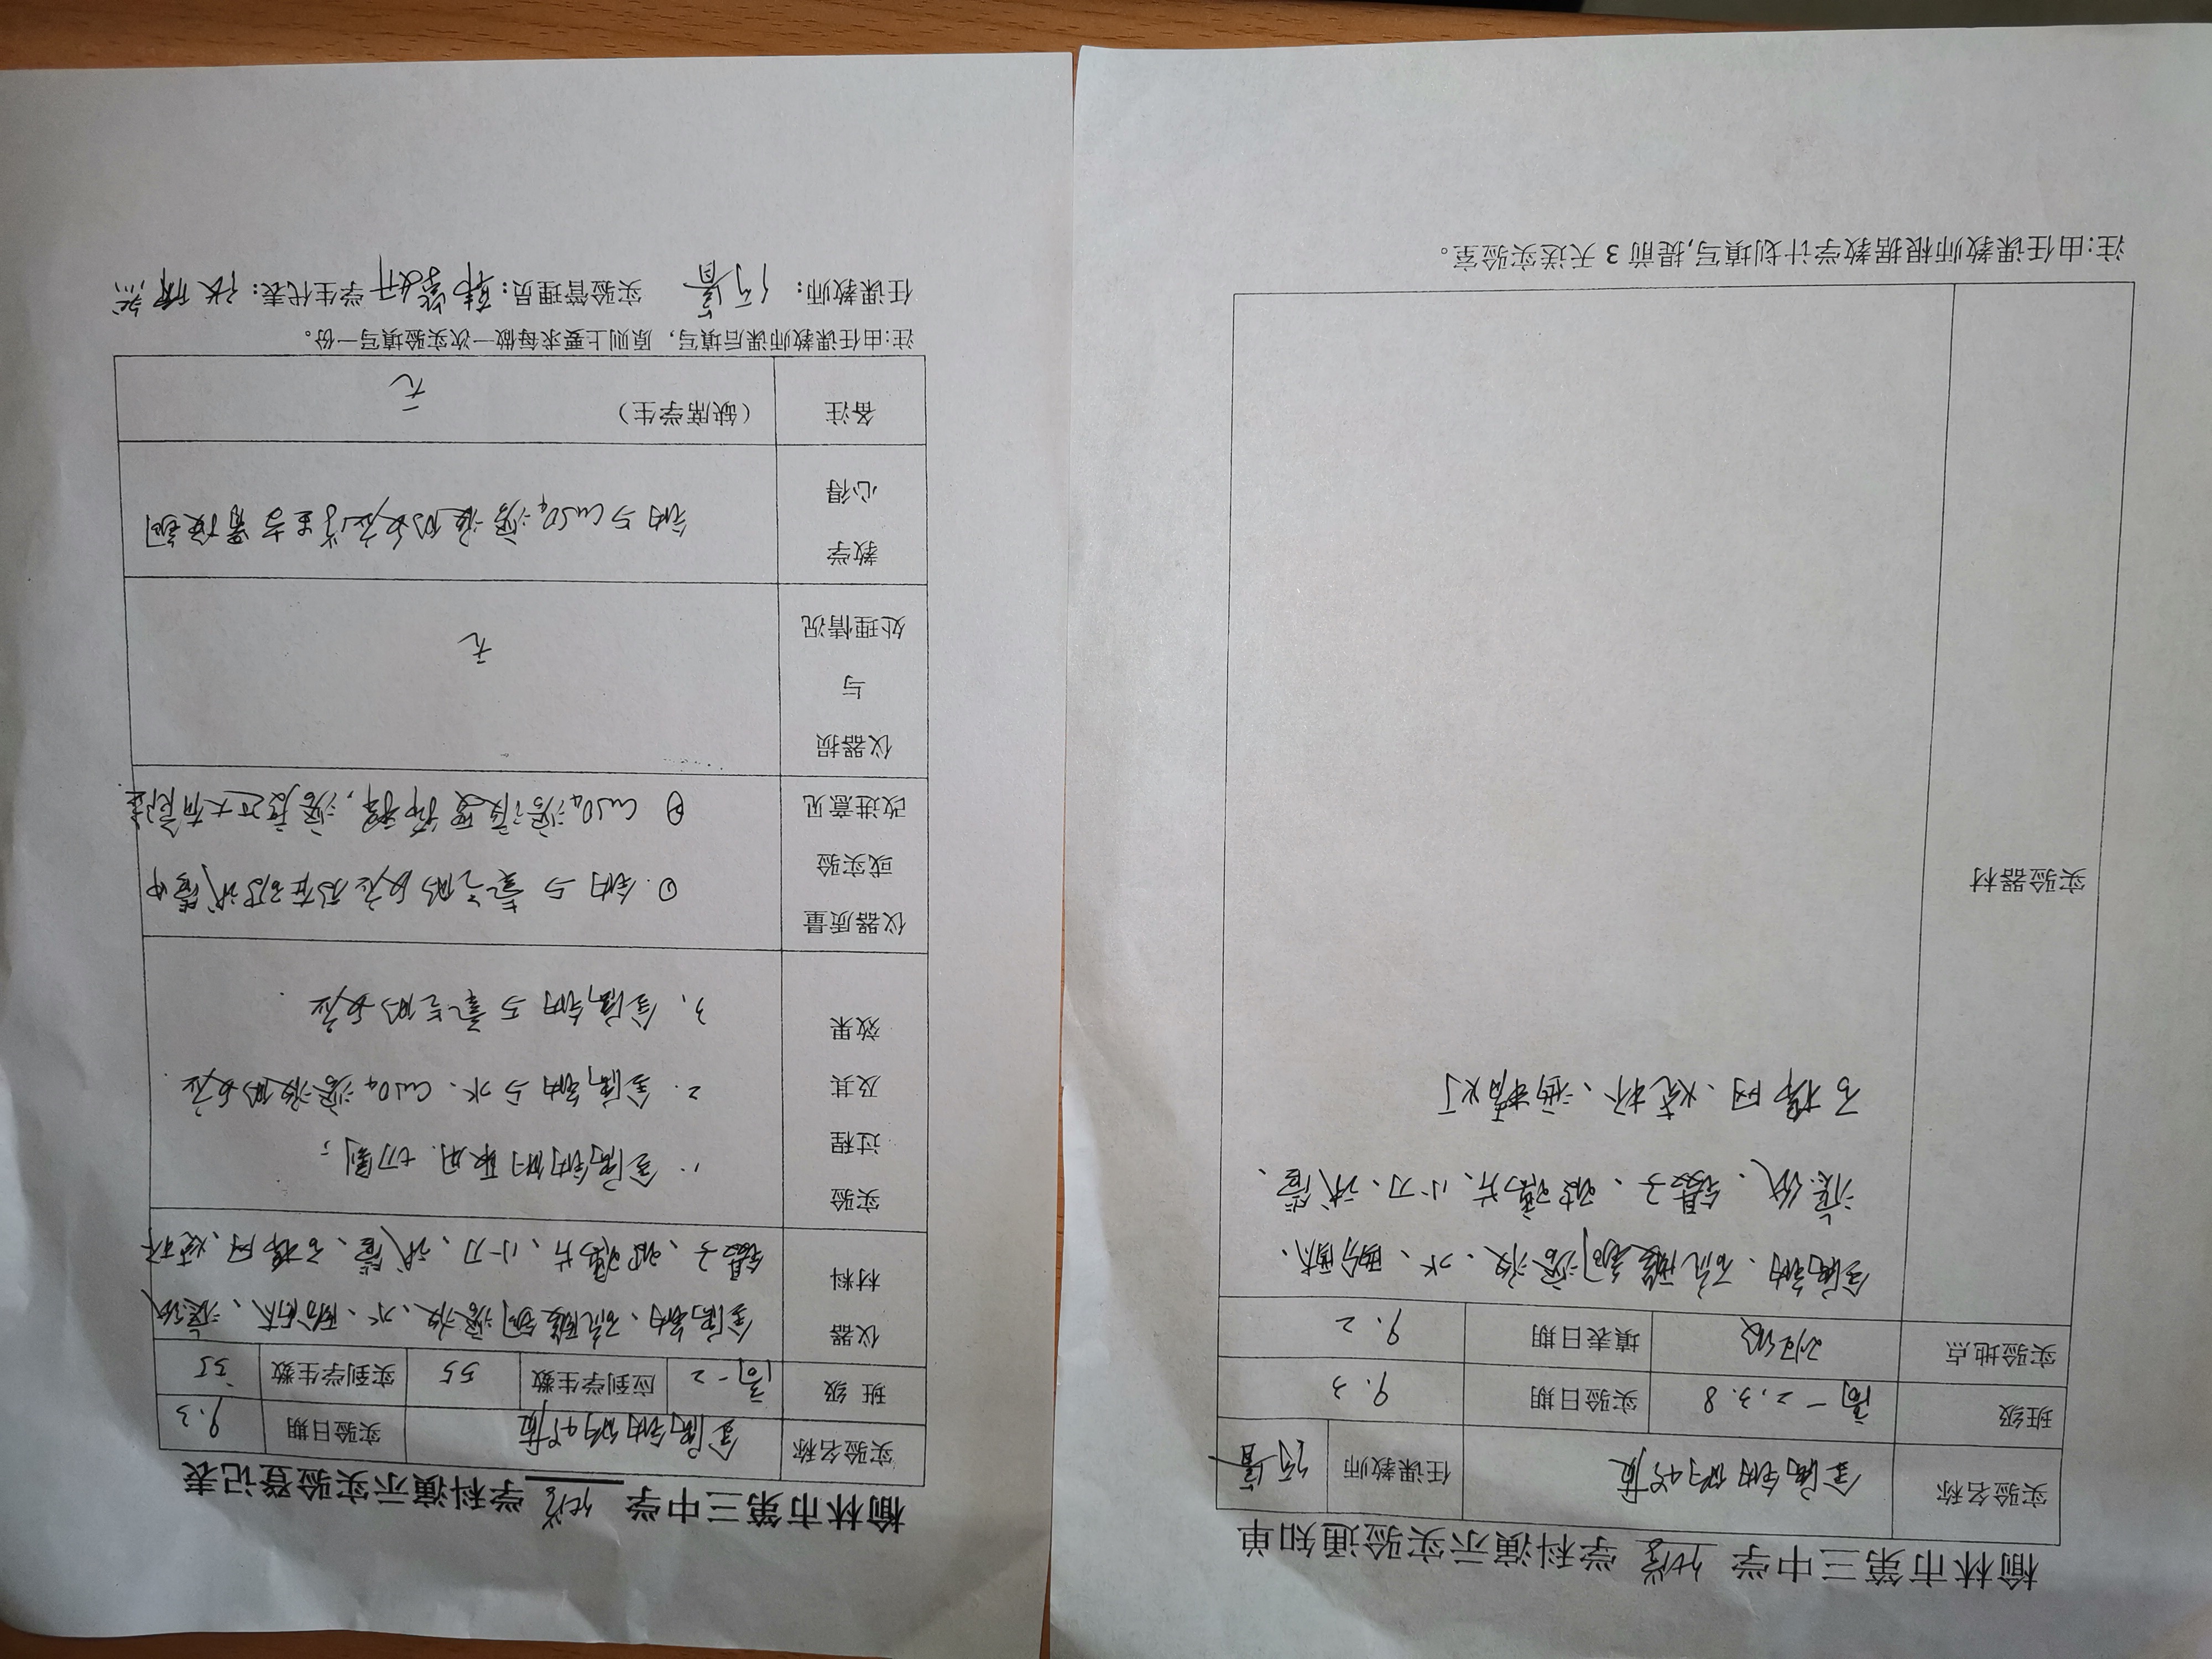 榆林市第三中学 化学 学科演示实验通知单
实验名称 金属钠的性质 任课教师
班级 高一2,3.8 实验日期 9.3
实验地点 班级 填表日期 9.2
实验器材
金属钠、硫酸铜溶液、水、酚酞、
滤纸、镊子、玻璃片、小刀、试管、
石棉网、烧杯、酒精灯
注:由任课教师根据教学计划填写,提前 3 天送实验室。
榆林市第三中学 化学 学科演示实验登记表
实验名称 金属钠的性质 实验日期 9.3
班 级 高一2 应到学生数 55 实到学生数 55
仪器
材料
金属钠、硫酸铜溶液、水、酚酞、滤纸
镊子、玻璃片、小刀、试管、石棉网、烧杯
实验
过程
及其
效果
1. 金属钠的取用.切割;
2. 金属钠与水、CuSO4溶液的反应
3、金属钠与氧气的反应.
仪器质量
或实验
改进意见
① 钠与氧气的反应在试管中
② CuSO4溶液要稀释,浓度过大有危险
仪器损
与
处理情况
无
教学
心得
钠与CuSO4溶液的反应学生易写置换铜
备注
(缺席学生)
无
注:由任课教师课后填写, 原则上要求每做一次实验填写一份。
任课教师: 实验管理员: 学生代表: